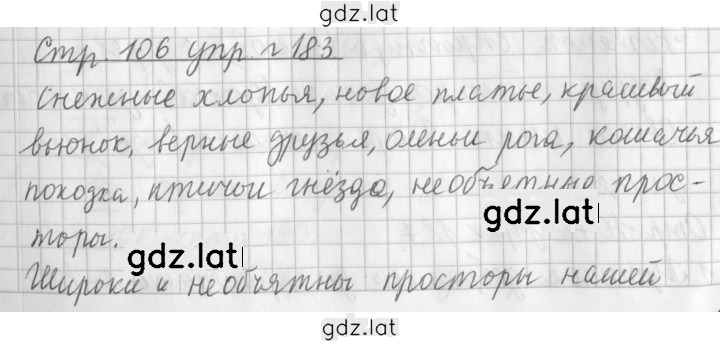 gdz.lat
Стр. 106 упр. № 183
Снежные хлопья, новое платье, красивый
вьюнок, верные друзья, оленьи рога, кошачья
походка, птичьи гнёзда, необъятные прос-
gdz.lat
торы.
gdz.lat
Широки и необъятны просторы нашей
gdz.lat